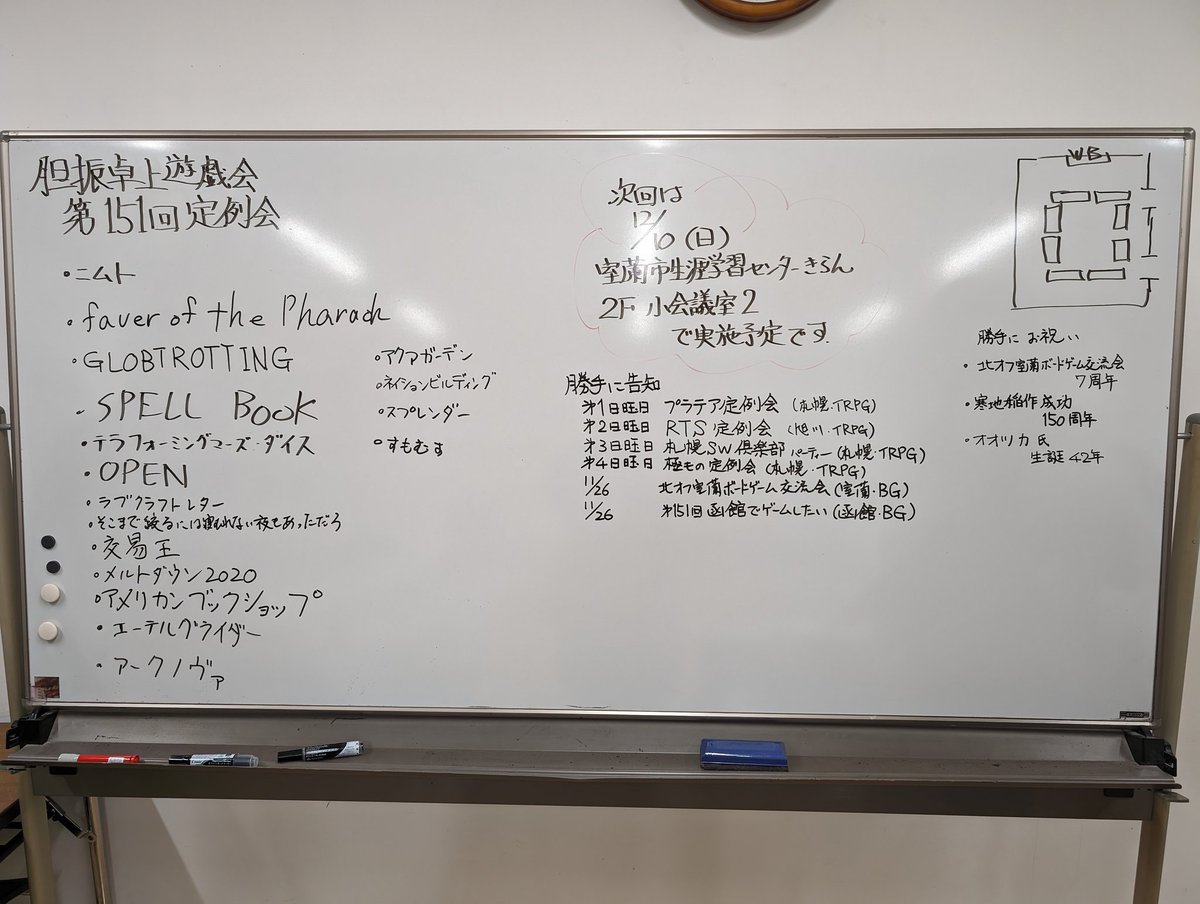 胆振卓上遊戯会
第151回定例会
・ニムト
・faver of the Pharaoh
・GLOBTROTTING
・SPELL BOOK
・テラフォーミングマーズ・ダイス
・OPEN
・ラブクラフトレター
・そこまで続るには眠れない夜もあっただろ
・交易王
・メルトダウン2020
・アメリカンブックショップ
・エーテルグライダー
・アークノヴァ
・アクアガーデン
・ネイションビルディング
・スプレンダー
・すもむす
次回は
12/10(日)
室蘭市生涯学習センターきらん
2F 小会議室2
で実施予定です.
勝手に告知
第1日曜日 プラテア定例会 (札幌・TRPG)
第2日曜日 RTS定例会 (旭川・TRPG)
第3日曜日 札幌SW倶楽部パーティー(札幌・TRPG)
第4日曜日 極もの定例会(札幌・TRPG)
11/26 北オフ室蘭ボードゲーム交流会(室蘭・BG)
11/26 第151回函館でゲームしたい(函館・BG)
WB
勝手にお祝い
・北オフ室蘭ボードゲーム交流会
7周年
・寒地稲作成功
150周年
・オオツカ氏
生誕42年